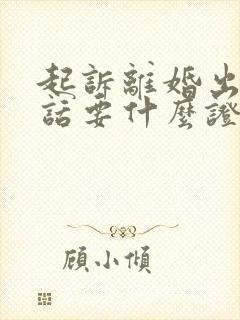 起訴離婚出
話要什麼證
顧小傾